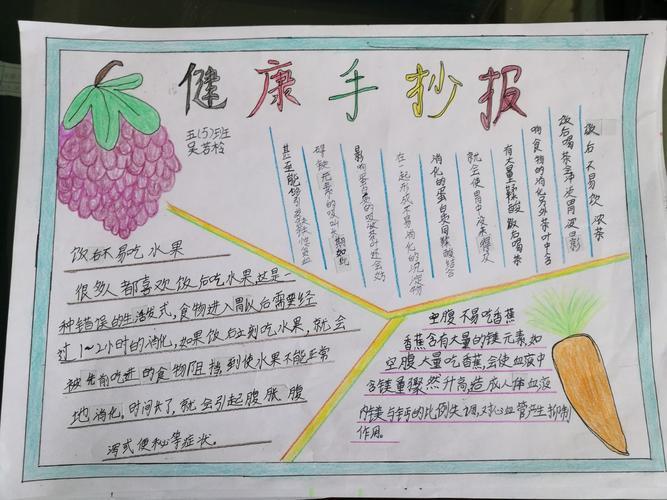 健康手抄报
五(5)班
吴若
饭后不易饮浓茶
饭后喝茶会冲淡胃液影
响食物的消化另外茶叶中含
有大量鞣酸饭后喝茶
就会使胃中没来
消化的蛋白质同鞣酸结合
在一起形成不易消化的沉淀物
影响蛋白质的吸收茶叶还会妨
碍铁元素的吸收长期如此
甚至能够引发缺铁性贫血
饭后不易吃水果
很多人都喜欢饭后吃水果这是一
种错误的生活方式,食物进入胃以后需要经
过1~2小时的消化,如果饭后立刻吃水果,就会
被先前吃进的食物阻挡到使水果不能正常
地消化。时间长了,就会引起腹胀腹
泻或便秘等症状。
空腹不易吃香蕉
香蕉含有大量的镁元素如
空腹大量吃香蕉,会使血液中
含镁量骤然升高造成人体血液
内镁与钙的比例失调,对心血管产生抑制
作用。